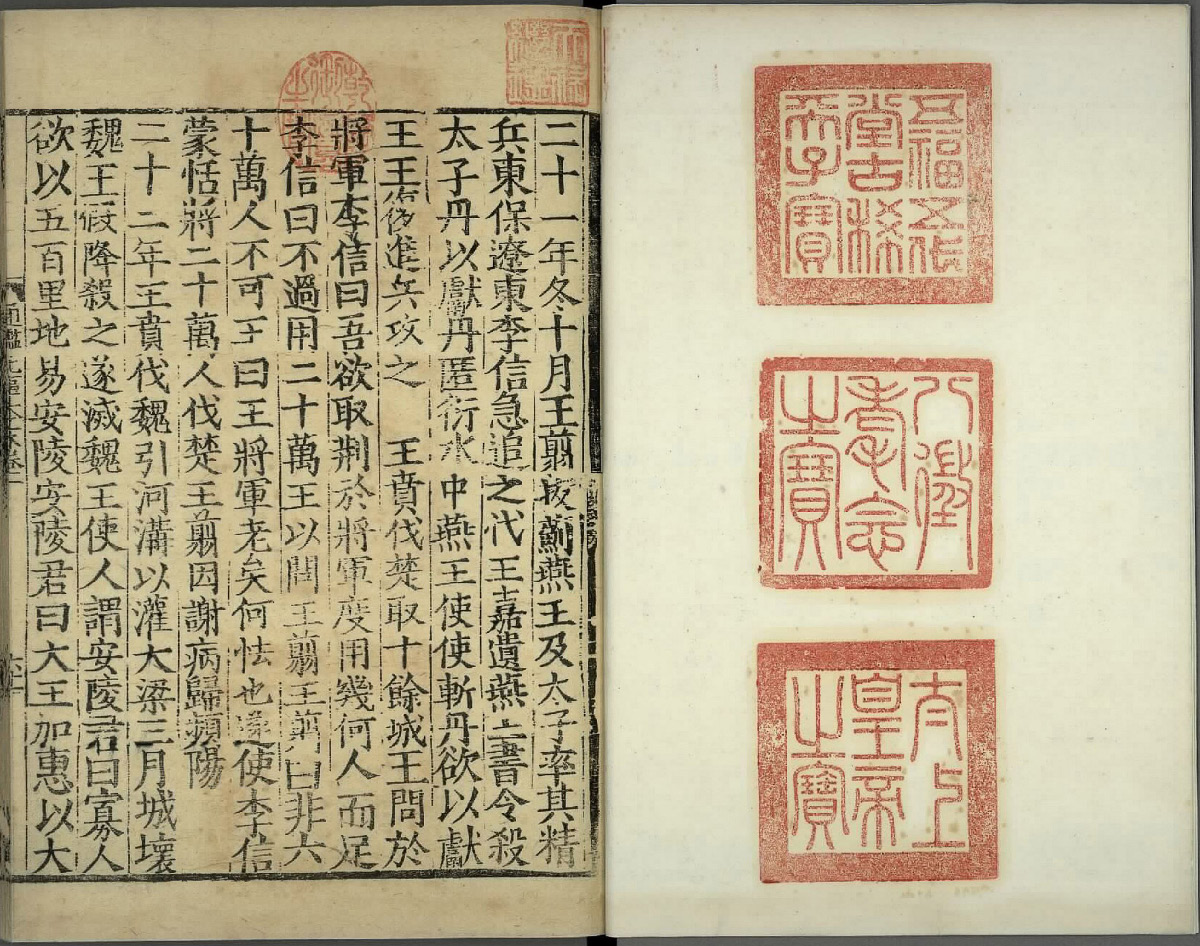 五福五代
堂古稀
天子寶
八徵
耄念
之寶
太上
皇帝
之寶
天祿
繼鑑
乾隆
御覽
之寶
二十一年冬十月王翦拔薊燕王及太子率其精
兵東保遼東李信急追之代王嘉遺燕王書令殺
太子丹以獻丹匿衍水中燕王使使斬丹欲以獻
王王復進兵攻之　王賁伐楚取十餘城王問於
將軍李信曰吾欲取荊於將軍度用幾何人而足
李信曰不過用二十萬王以問王翦王翦曰非六
十萬人不可王曰王將軍老矣何怯也遂使李信
蒙恬將二十萬人伐楚王翦因謝病歸頻陽
二十二年王賁伐魏引河溝以灌大梁三月城壞
魏王假降殺之遂滅魏王使人謂安陵君曰寡人
欲以五百里地易安陵安陵君曰大王加惠以大
通鑑